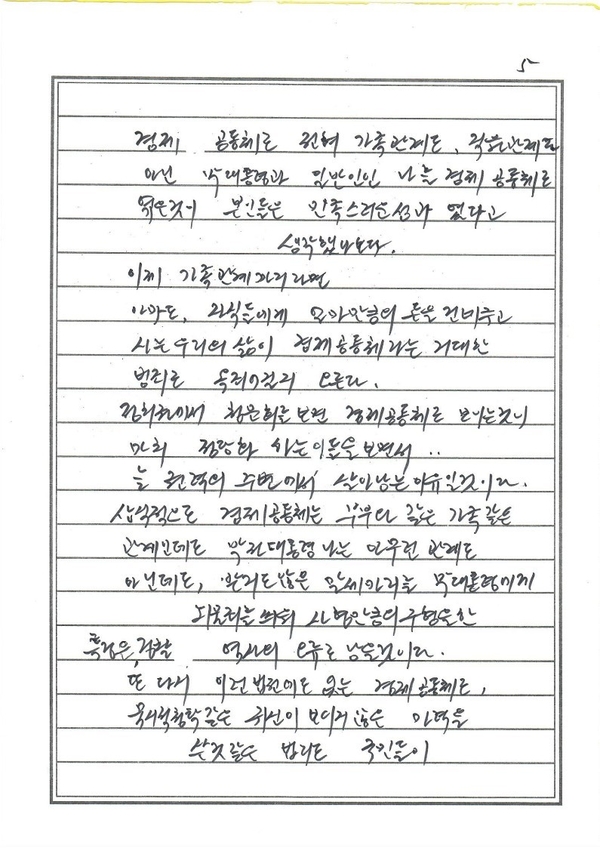 5
경제 공동체로 전혀 가족관계도,
아닌 박대통령과 일반인인 나를 경제 공동체로
엮은것이 본인들은 만족스러운 성과 였다고
생각했나보다.
이제 가족관계
아마도, 자식들에게 얼마만큼의 돈을 건네주고
사는 우리의 삶이 경제공동체라는 거대한
범죄로 모른다.
경제공동체로 보나는것이
마치 정당화 하는 이들을 보면서..
늘 권력의 주변에서 살아남는 이유일것이다.
상식적으로 경제공동체는 부부와 같은 가족같은
관계인데도 박전대통령 나는 아무런 관계도
아닌데도, 받지도 않은 말세마리를 박대통령에게
뇌물죄를 씌워 사형만큼의 구형을한
특검은, 검찰 역사의 오류로 남을것이다.
또 다시 이런 법전에도 없는 경제공동체로,
투시적창작 같은 귀신이 보이지 않은 마력을
쓴것같은 법리도 국민들이